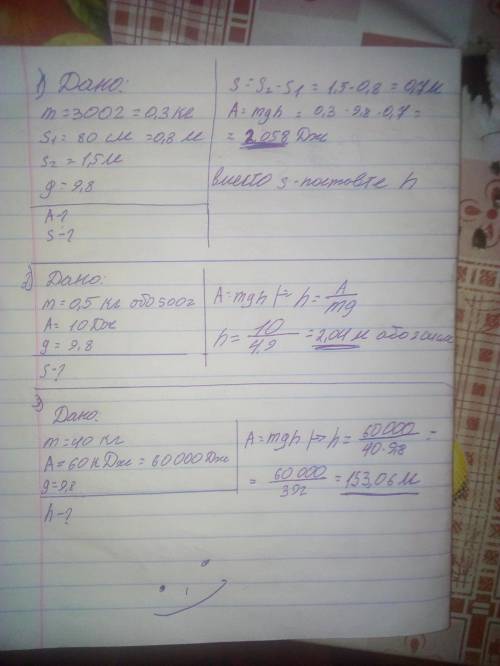 1) Дано:
m = 300г = 0,3 кг
S₁ = 80 см = 0,8 м
S₂ = 1,5 м
g = 9,8
A-?
S-?
S = S₂ - S₁ = 1,5 - 0,8 = 0,7 м
A = mgh = 0,3 · 9,8 · 0,7 =
= 2,058 Дж
вместо s - поставте h
2) Дано:
m = 0,5 кг або 500г
A = 10 Дж
g = 9,8
S-?
A = mgh |=> h = A/mg
h = 10/4,9 = 2,04 м або
3) Дано:
m = 40 кг
A = 60 кДж = 60 000 Дж
g = 9,8
h-?
A = mgh |=> h = 60 000/40·9,8 =
= 60 000/392 = 153,06 м